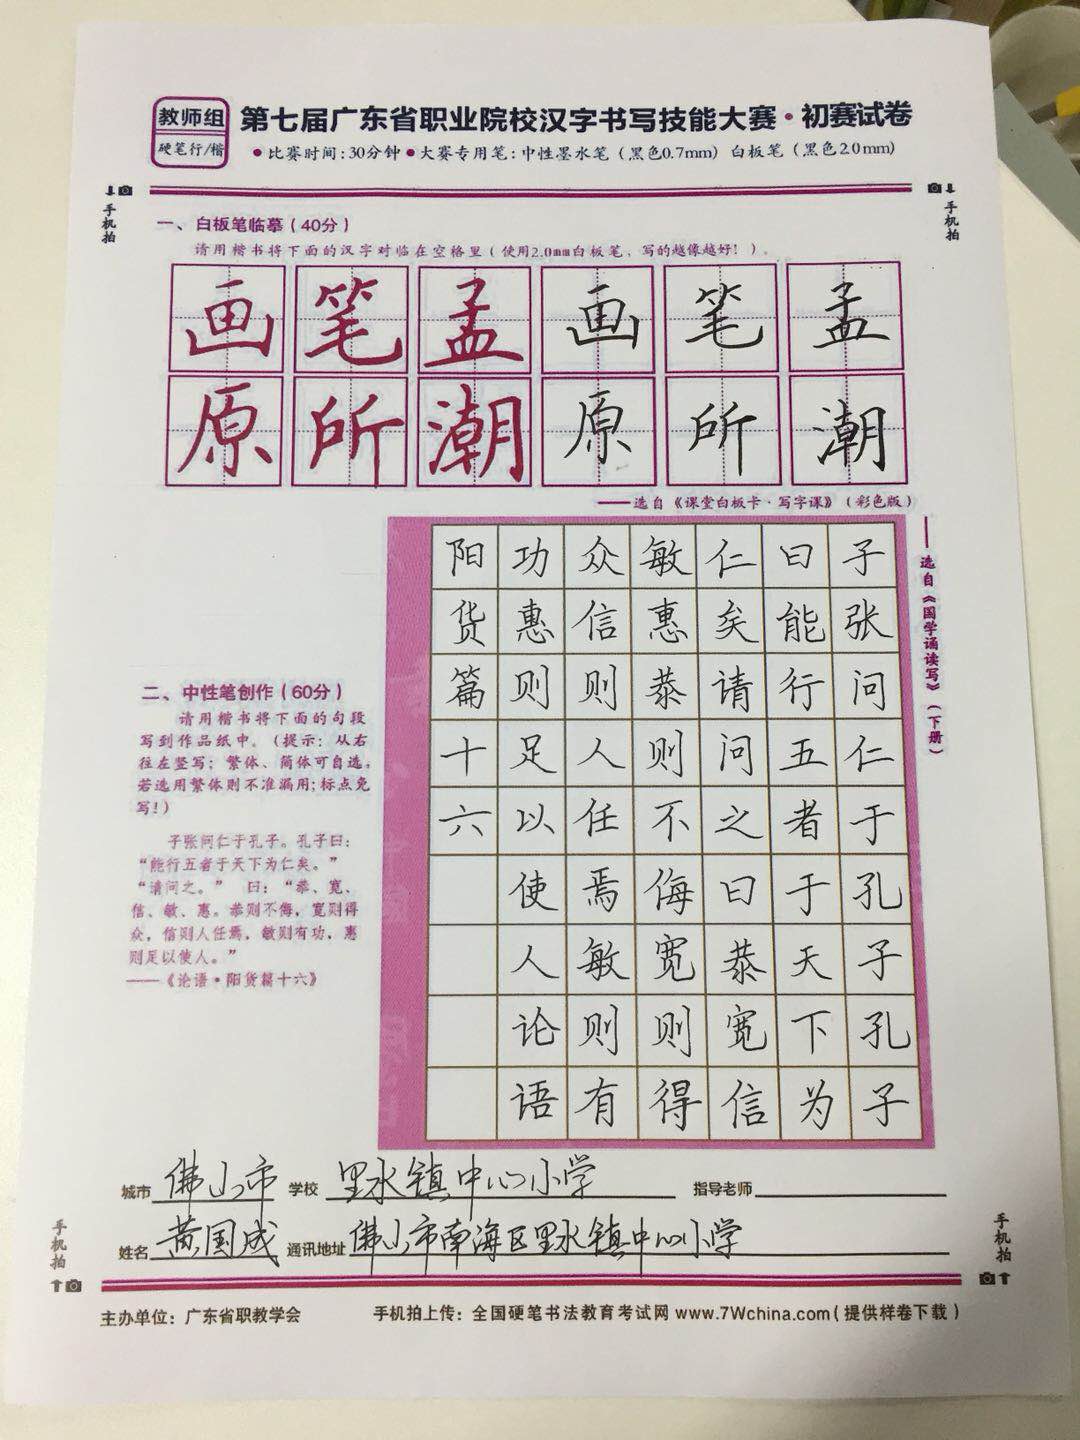 教师组
硬笔行/楷
第七届广东省职业院校汉字书写技能大赛·初赛试卷
●比赛时间:30分钟●大赛专用笔:中性墨水笔(黑色0.7mm) 白板笔(黑色2.0mm)
手机拍
手机拍
一、白板笔临摹(40分)
请用楷书将下面的汉字对临在空格里(使用2.0mm白板笔,写的越像越好!)。
画笔孟画笔孟
原所潮原所潮
——选自《课堂白板卡·写字课》(彩色版)
——选自《国学诵读写》(下册)
子张问仁于孔子孔子
曰能行五者于天下为
仁矣请问之曰恭宽信
敏惠恭则不侮宽则得
众信则人任焉敏则有
功惠则足以使人论语
阳货篇十六
二、中性笔创作(60分)
请用楷书将下面的句段
写到作品纸中。(提示:从右
往左竖写;繁体、简体可自选,
若选用繁体则不准漏用;标点免
写!)
子张问仁于孔子。孔子曰:
“能行五者于天下为仁矣。”
“请问之。” 曰:“恭、宽、
信、敏、惠。恭则不侮,宽则得
众,信则人任焉,敏则有功,惠
则足以使人。”
——《论语·阳货篇十六》
城市 佛山市 学校 里水镇中心小学 指导老师
姓名 黄国成 通讯地址 佛山市南海区里水镇中心小学
手机拍
手机拍
主办单位:广东省职教学会 手机拍上传:全国硬笔书法教育考试网 www.7Wchina.com(提供样卷下载)